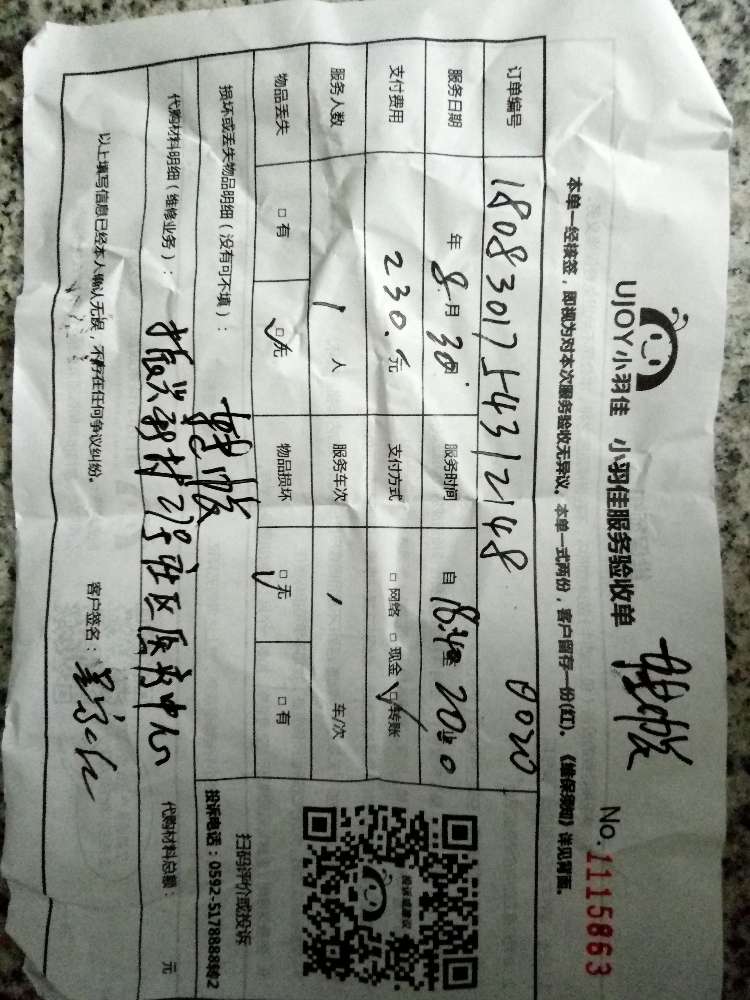 UJOY小羽佳 小羽佳服务验收单
No.1115863
本单一经接签，即视为对本次服务验收无异议。本单一式两份，客户留存一份(红)。《维保须知》详见背面。
订单编号 1808301754312148 0020
服务日期 年 8月30日 服务时间 自 至
支付费用 230.0元 支付方式 □网络 □现金 ☑转账
服务人数 1 人 服务车次 / 车/次
物品丢失 □有 ☑无 物品损坏 ☑无 □有
损坏或丢失物品明细（没有可不填）：
代购材料明细（维修业务）： 振兴新村 号社区医疗中心 代购材料总额： 元
以上填写信息已经本人确认无误，不存在任何争议纠纷。 客户签名：
扫码评价或投诉
投诉电话：0592-5178888转2
投诉或建议